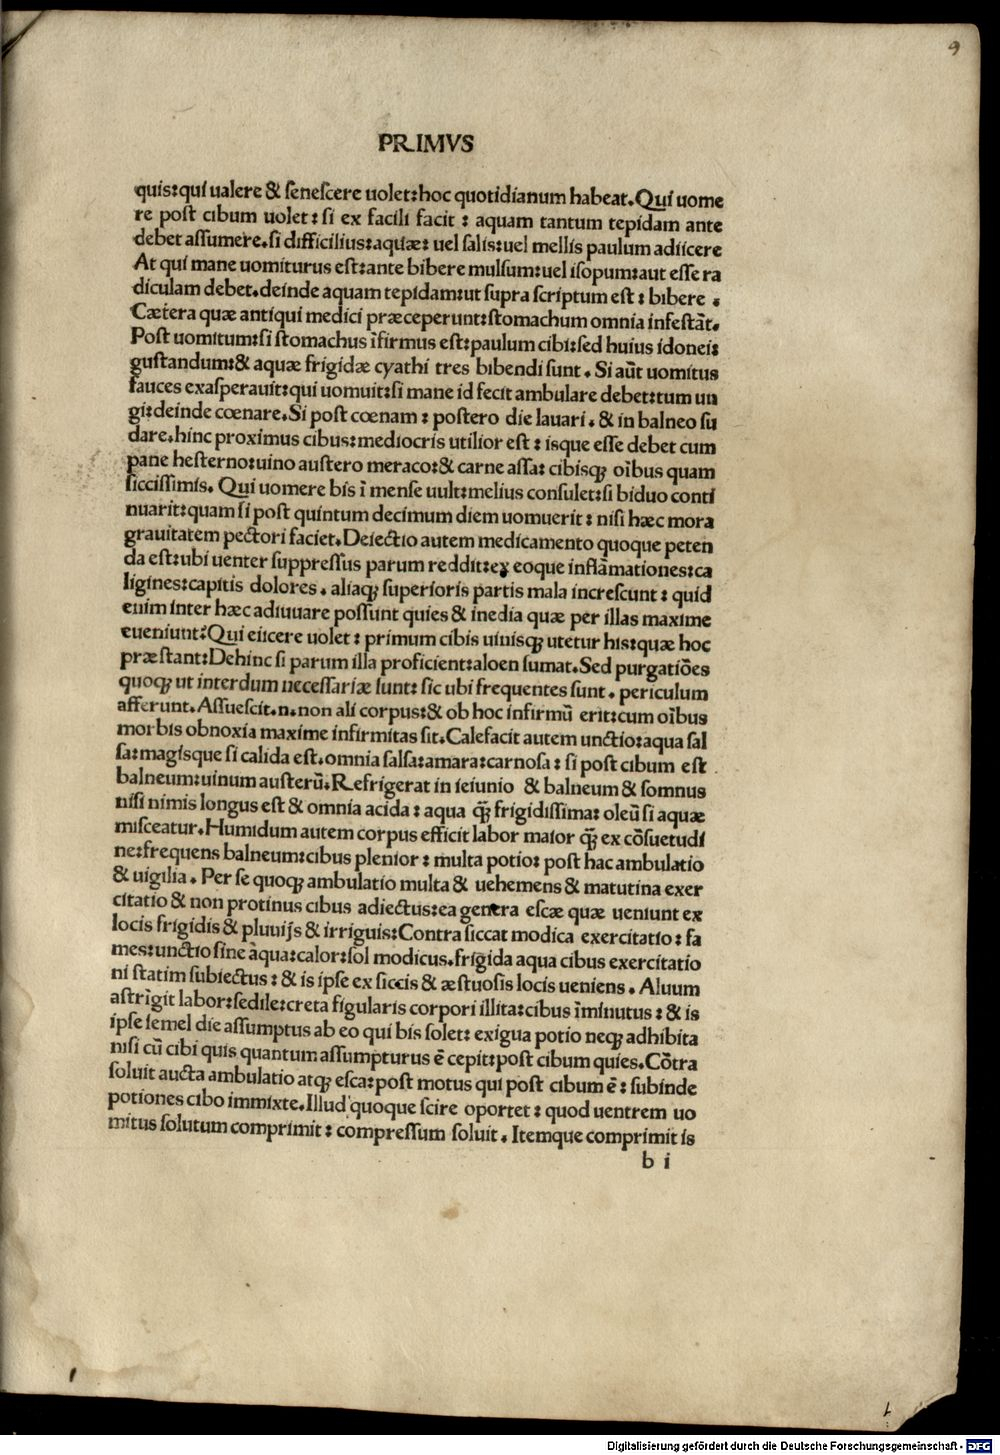 9
PRIMVS
quis:qui ualere & ſeneſcere uolet:hoc quotidianum habeat.Qui uome
re poſt cibum uolet: ſi ex facili facit : aquam tantum tepidam ante
debet aſſumere.ſi difficilius:aquæ: uel ſalis:uel mellis paulum adiicere
At qui mane uomiturus eſt:ante bibere mulſum:uel iſopum:aut eſſe ra
diculam debet.deinde aquam tepidam:ut ſupra ſcriptum eſt : bibere .
Cætera quæ antiqui medici præceperunt:ſtomachum omnia infeſtāt.
Poſt uomitum:ſi ſtomachus īfirmus eſt:paulum cibi:ſed huius idonei:
guſtandum:& aquæ frigidæ cyathi tres bibendi ſunt . Si aūt uomitus
fauces exaſperauit:qui uomuit:ſi mane id fecit ambulare debet:tum un
gi:deinde cœnare.Si poſt cœnam : poſtero die lauari . & in balneo ſu
dare.hinc proximus cibus:mediocris utilior eſt : isque eſſe debet cum
pane heſterno:uino auſtero meraco:& carne aſſa: cibisqꝫ oībus quam
ſicciſſimis. Qui uomere bis ī menſe uult:melius conſulet:ſi biduo conti
nuarit:quam ſi poſt quintum decimum diem uomuerit : niſi hæc mora
grauitatem pectori faciet.Deiectio autem medicamento quoque peten
da eſt:ubi uenter ſuppreſſus parum reddit:ex eoque inflāmationes:ca
ligines:capitis dolores . aliaqꝫ ſuperioris partis mala increſcunt : quid
enim inter hæc adiuuare poſſunt quies & inedia quæ per illas maxime
eueniunt?Qui eiicere uolet : primum cibis uinisqꝫ utetur his:quæ hoc
præſtant:Dehinc ſi parum illa proficient:aloen ſumat.Sed purgatiōes
quoqꝫ ut interdum neceſſariæ ſunt: ſic ubi frequentes ſunt . periculum
afferunt.Aſſueſcit.n.non ali corpus:& ob hoc infirmū erit:cum oībus
morbis obnoxia maxime infirmitas ſit.Calefacit autem unctio:aqua ſal
ſa:magisque ſi calida eſt.omnia ſalſa:amara:carnoſa : ſi poſt cibum eſt
balneum:uinum auſterū.Refrigerat in ieiunio & balneum & ſomnus
niſi nimis longus eſt & omnia acida : aqua qꝫ̄ frigidiſſima: oleū ſi aquæ
miſceatur.Humidum autem corpus efficit labor maior qꝫ̄ ex cōſuetudi
ne:frequens balneum:cibus plenior : multa potio: poſt hac ambulatio
& uigilia . Per ſe quoqꝫ ambulatio multa & uehemens & matutina exer
citatio & non protinus cibus adiectus:ea genera eſcæ quæ ueniunt ex
locis frigidis & pluuiis & irriguis:Contra ſiccat modica exercitatio : fa
mes:unctio ſine aqua:calor:ſol modicus.frigida aqua cibus exercitatio
ni ſtatim ſubiectus : & is ipſe ex ſiccis & æſtuoſis locis ueniens . Aluum
aſtringit labor:ſedile:creta figularis corpori illita:cibus īminutus : & is
ipſe ſemel die aſſumptus ab eo qui bis ſolet: exigua potio neqꝫ adhibita
niſi cū cibi quis quantum aſſumpturus ē cepit:poſt cibum quies.Cōtra
ſoluit aucta ambulatio atqꝫ eſca:poſt motus qui poſt cibum ē : ſubinde
potiones cibo immixte.Illud quoque ſcire oportet : quod uentrem uo
mitus ſolutum comprimit : compreſſum ſoluit . Itemque comprimit is
b i
Digitalisierung gefördert durch die Deutsche Forschungsgemeinschaft - DFG